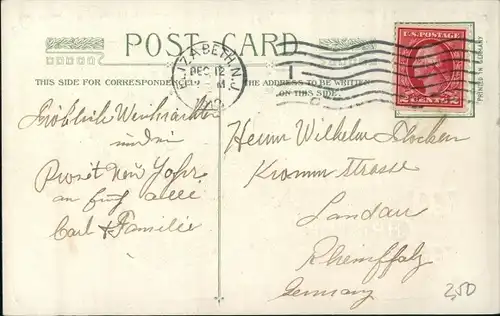 POST CARD
THIS SIDE FOR CORRESPONDENCE
THE ADDRESS TO BE WRITTEN
ON THIS SIDE.
ELIZABETH, N.J.
DEC 12
U.S. POSTAGE
2 CENTS 2
PRINTED IN GERMANY
Fröhlich Weihnachten
und ein
Prosit Neu Jahr.
an euch alle
Carl & Familie
Herrn Wilhelm
Kromm Strasse
Landau
Rheinpfalz
Germany
2,50